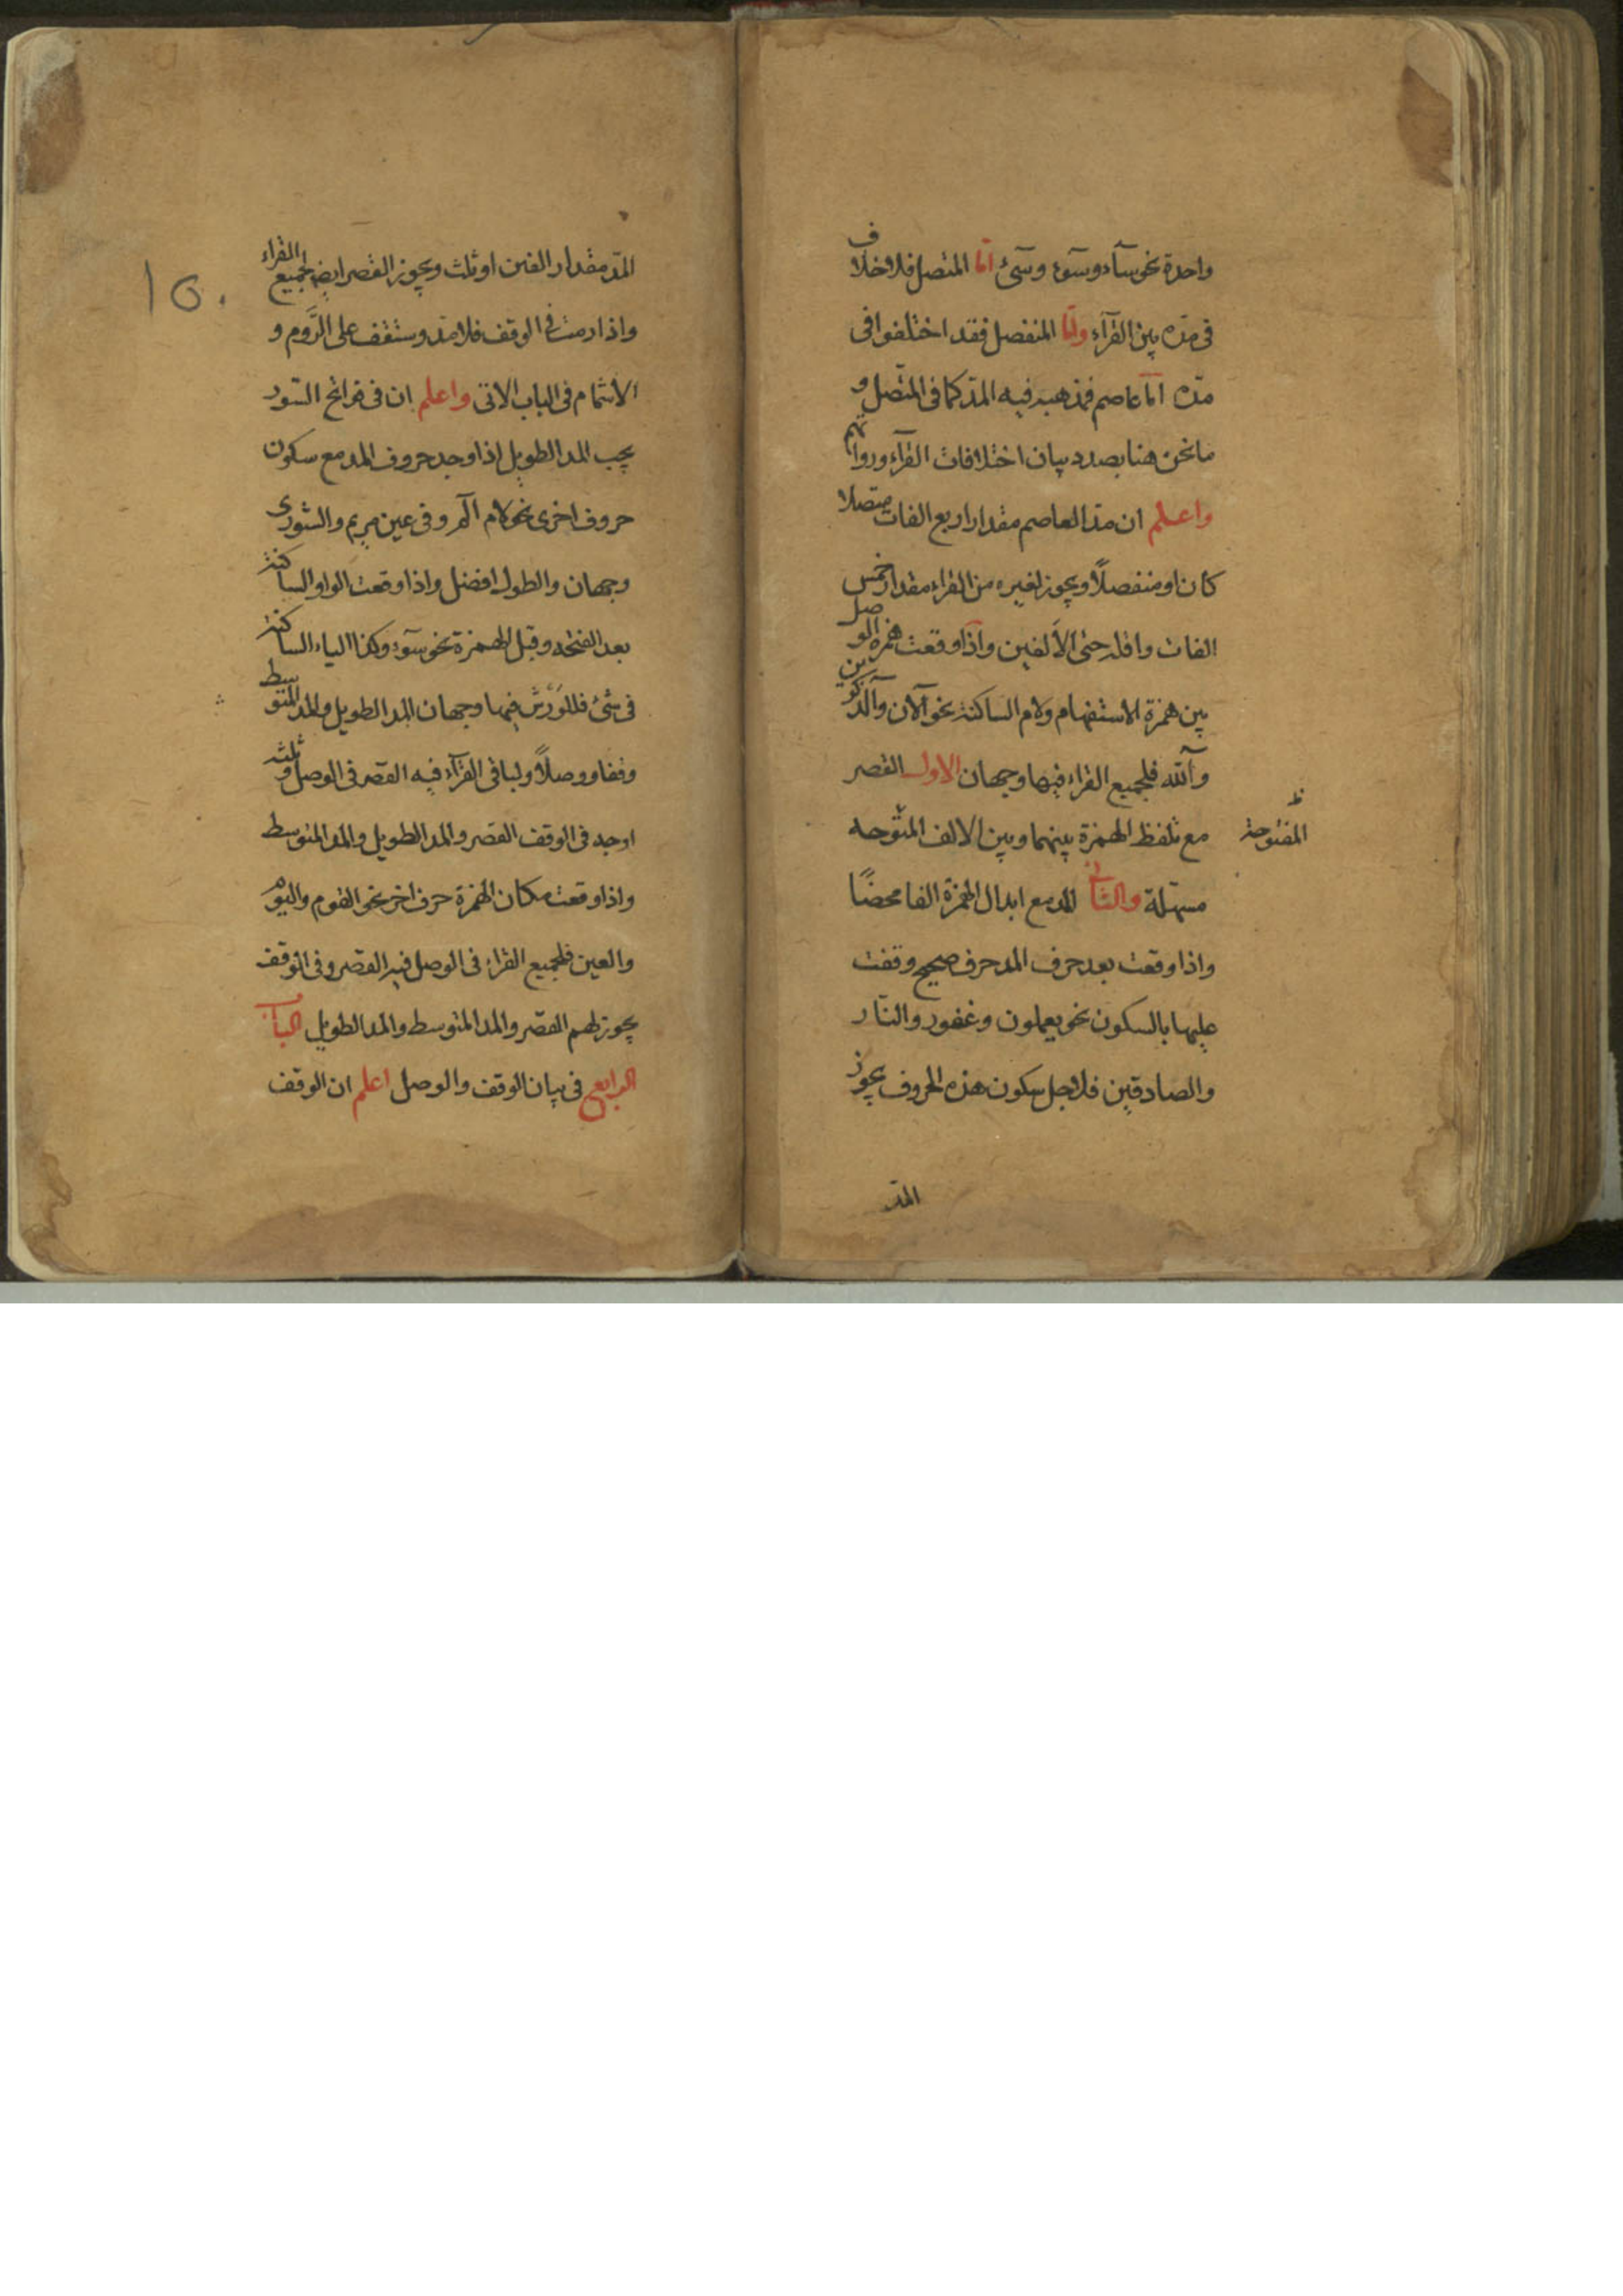 واحدة نحو سآء وسوٓء وسیٓئ امّا المتصل فلا خلاف
فی مدّه بین القرّآء وامّا المنفصل فقد اختلفوا فی
مدّه امّا عاصم فمذهبه فیه المدّ کما فی المتّصل و
ما نحن هنا بصدد بیان اختلافات القرّآء ورواتهم
واعلم ان مدّ العاصم مقدار اربع الفات متصلا
کان او منفصلاً ویجوز لغیره من القراء مقدار خمس
الفات واقله حتی الألفین واذا وقعت همزة الوصل
بین همزة الاستفهام ولام الساکنة نحو آلان وآلذکرین
وآلله فلجمیع القراء فیها وجهان الاول القصر
مع تلفظ الهمزة بینهما وبین الالف المتوحه
المفتوحة
مسهّلة والثانی المد مع ابدال الهمزة الفا محضًا
واذا وقعت بعد حرف المد حرف صحیح وقفت
علیها بالسکون نحو یعملون وغفور والنّار
والصادقین فلاجل سکون هذه الحروف یجوز
المدّ
المدّ مقدار الفین او ثلث ویجوز القصر ایضا لجمیع القراء
واذا رمت فی الوقف فلا مدّ وستقف علی الرَّوم و
الاشمام فی الباب الاتی واعلم ان فی فواتح السّور
یجب المد الطویل اذا وجد حروف المد مع سکون
حروف اخری نحو لام الٓمر وفی عین مریم والشوری
وجهان والطول افضل واذا وقعت الواو الساکنة
بعد الفتحه وقبل الهمزة نحو سَوٓء وکذا الیاء الساکنة
فی شئ فللوَرْش فیها وجهان المد الطویل والمد المتوسط
وقفا ووصلاً ولباقی القرّآء فیه القصر فی الوصل وثلثة
اوجه فی الوقف القصر والمد الطویل والمد المتوسط
واذا وقعت مکان الهمزة حرف اخر نحو القوم والیوم
والعین فلجمیع القراء فی الوصل فیه القصر وفی الوقف
یجوز لهم القصر والمد المتوسط والمد الطویل الباب
الرابع فی بیان الوقف والوصل اعلم ان الوقف